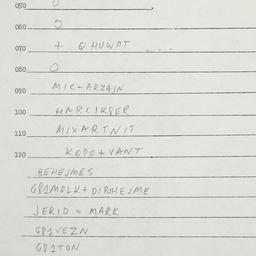 050 O
060 O
070 + QHUWPT - - -
080 O
090 MIC-ARZAIN
100 HARCIKPER
110 MIXARTNIT
120 KOPO+VANT
BEHEJMES
JERID = MARK
G81VEZN
G81TON